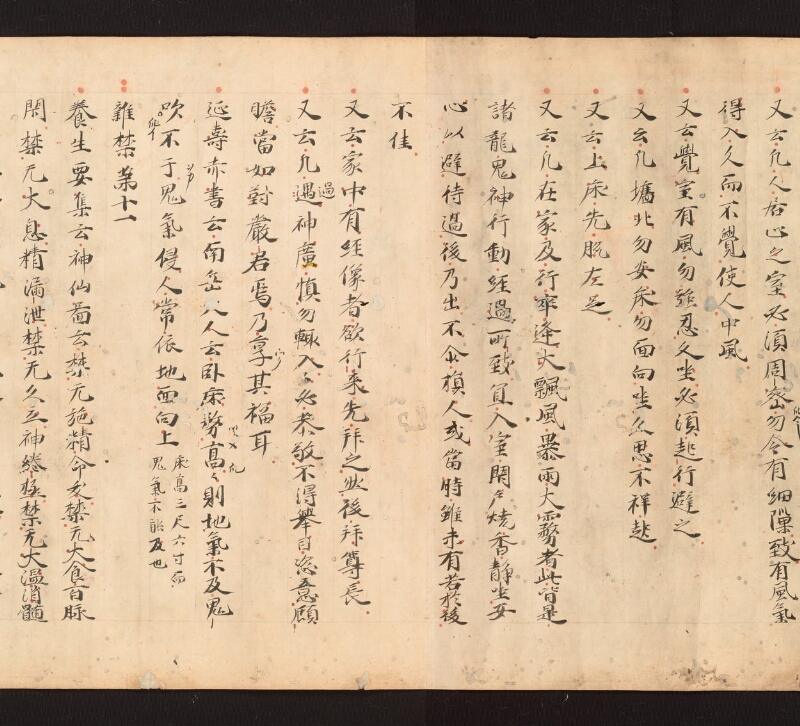 又云凡人居止之室必須周密勿令有細隙致有風氣
得入久而不覺使人中風
又云覺室有風勿強忍久坐必須起行避之
又云凡墻北勿安床勿面向坐久思不祥起
又云上床先脱左足
又云凡在家及行卒逢大飄風暴雨大霧者此皆是
諸龍鬼神行動經過所致宜入室閇戶燒香靜坐安
心以避待過後乃出不尒損人或當時雖未有若於後
不佳
又云家中有經像者欲行来先拜之然後拜尊長
又云凡遇神廟慎勿輙入々必恭敬不得舉目恣意顧
過
瞻當如對嚴君焉乃享其福耳
延壽赤書云南岳夫人云卧床務高々則地氣不及鬼
吹不干鬼氣侵人常依地面向上
床高三尺六寸而
鬼氣不能及也
雜禁第十一
養生要集云神仙圖云禁无施精命夭禁无大食百脉
閇禁无大息精漏泄禁无久立神惓極禁无大温消髓